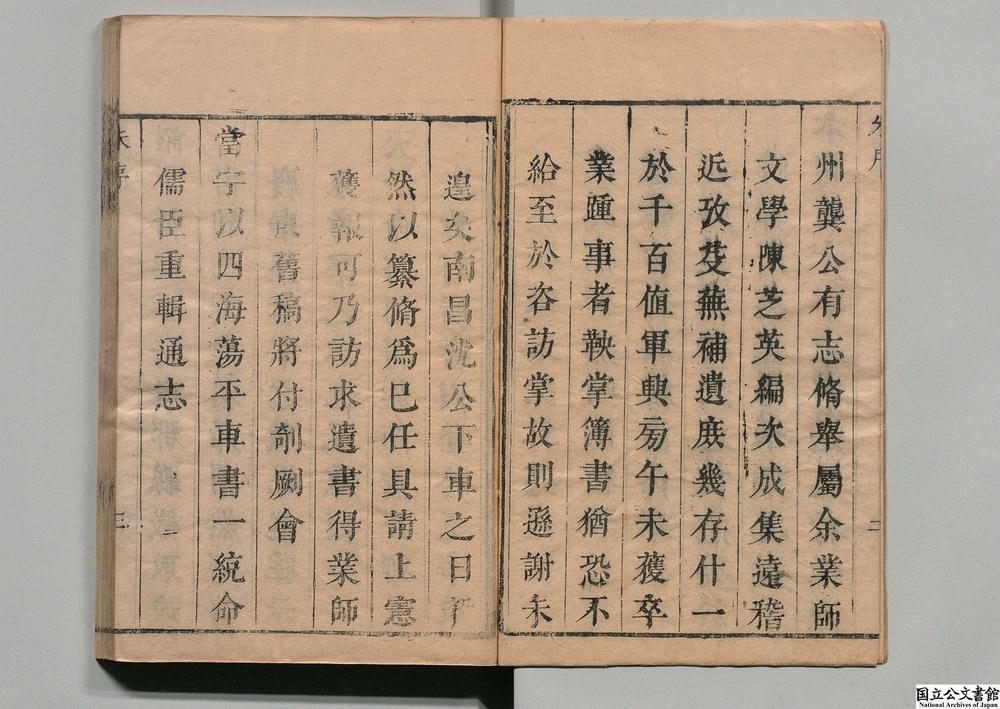 州龔公有志脩舉屬余業師
文學陳芝英編次成集遠稽
近攷芟蕪補遺庶幾存什一
於千百值軍興旁午未獲卒
業踵事者鞅掌簿書猶恐不
給至於咨訪掌故則遜謝未
二
遑矣南昌沈公下車之日
然以纂脩爲已任具請上憲
獲報可乃訪求遺書得業師
舊稿將付剞劂會
當宁以四海蕩平車書一統命
儒臣重輯通志
序
三
国立公文書館
National Archives of Japan